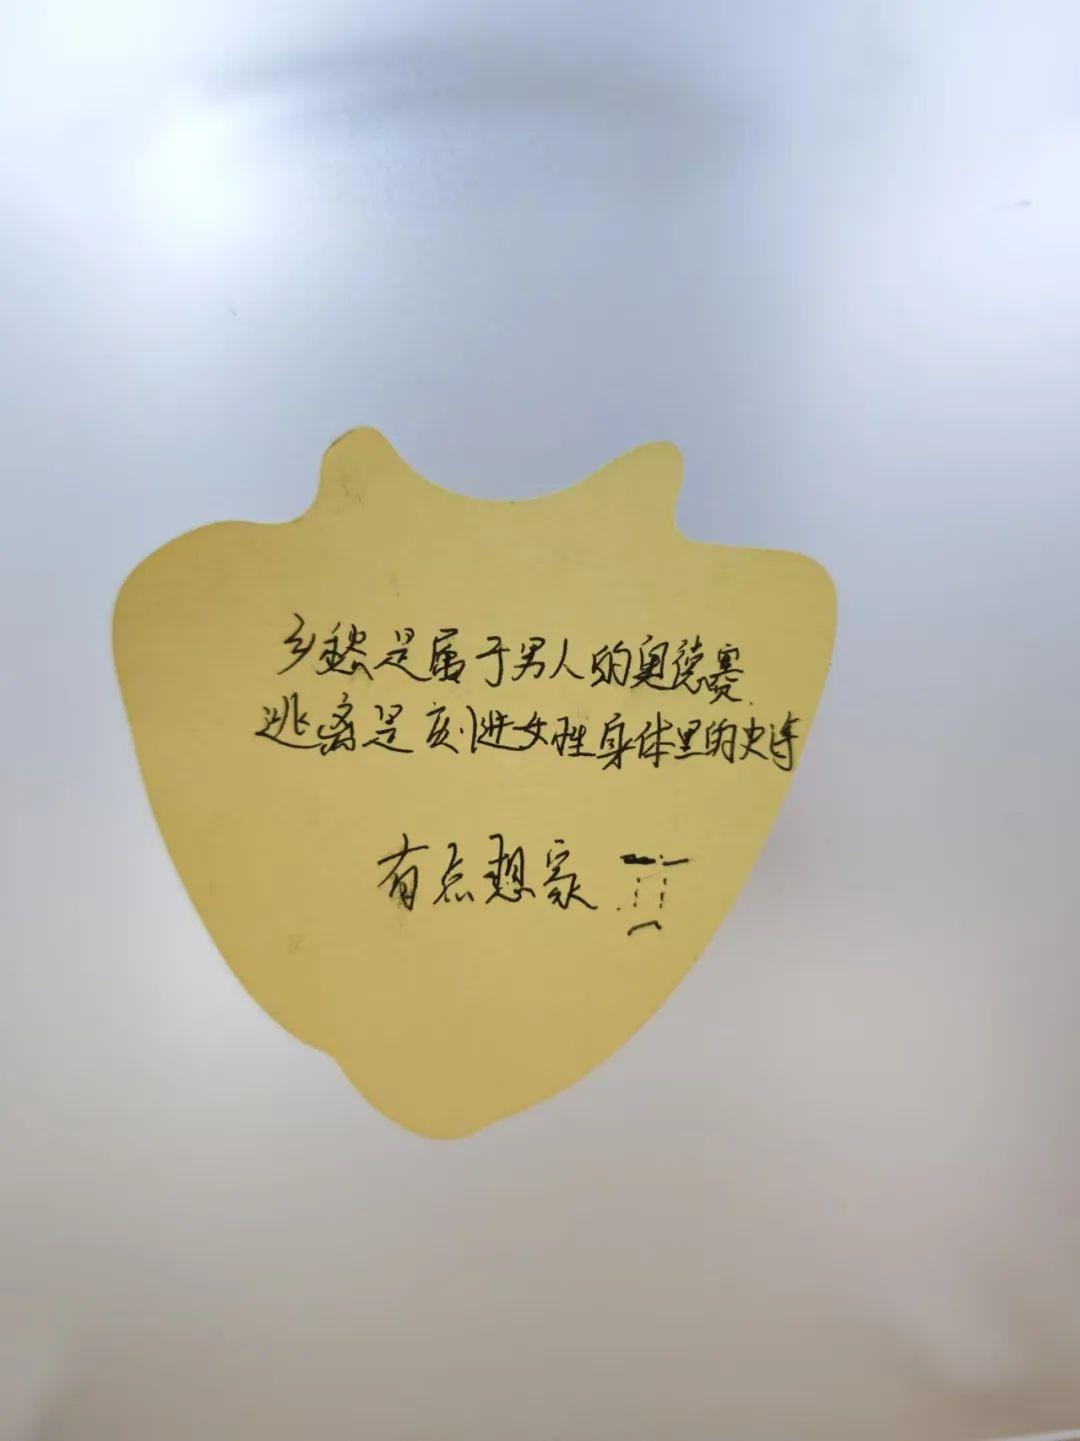 乡愁是属于男人的奥德赛
逃离是刻进女性身体里的史诗
有点想家